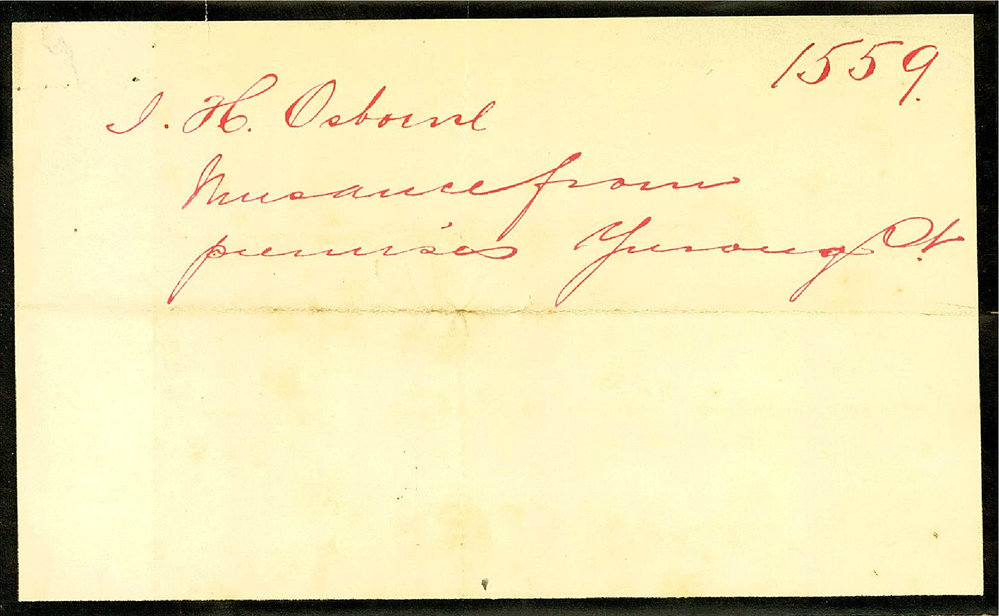 1559.
J. H. Osborne
Nuisance from
premises Yurong St.